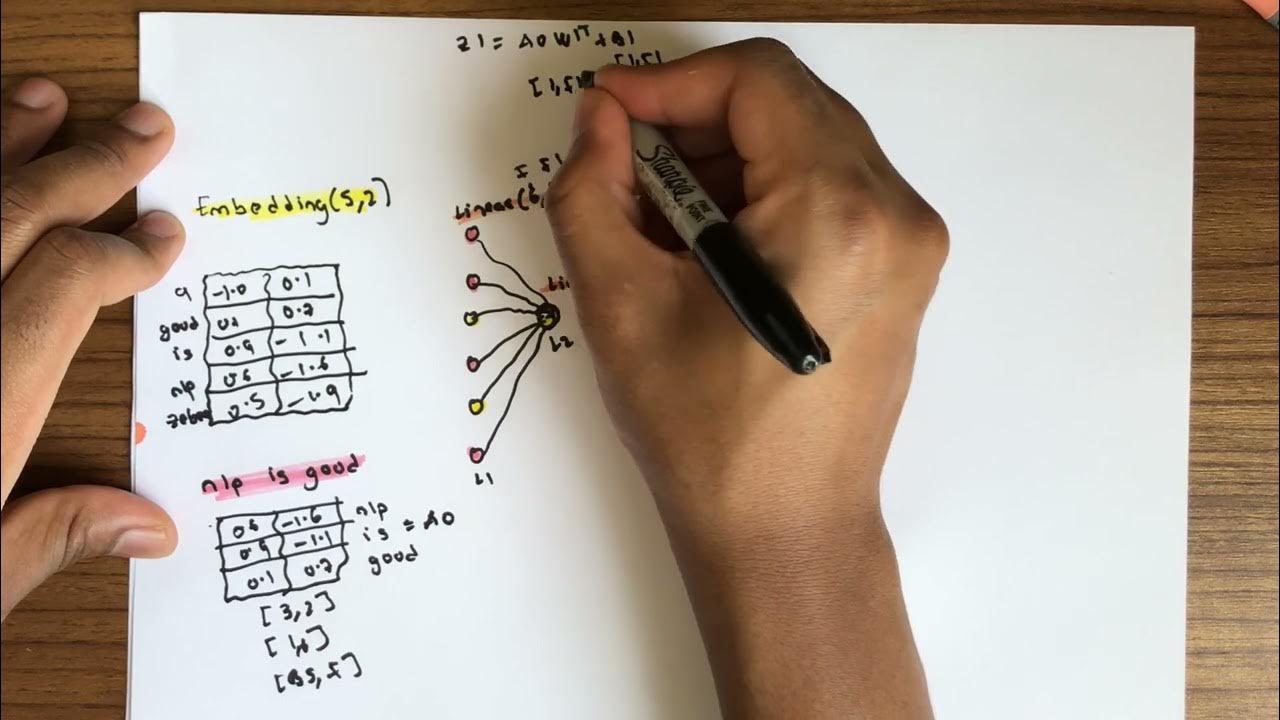 Z1 = A0 W1ᵀ + B1
Embedding(5,2)
a -1.0 0.1
good 0.2
is 0.9 -1.1
nlp 0.6 -1.6
0.5 -1.9
nlp is good
0.6 -1.6 nlp
0.9 -1.1 is = A0
0.1 0.2 good
[3,2]
[BS, F]
Linear(6,
L2
L1
Sharpie
FINE POINT